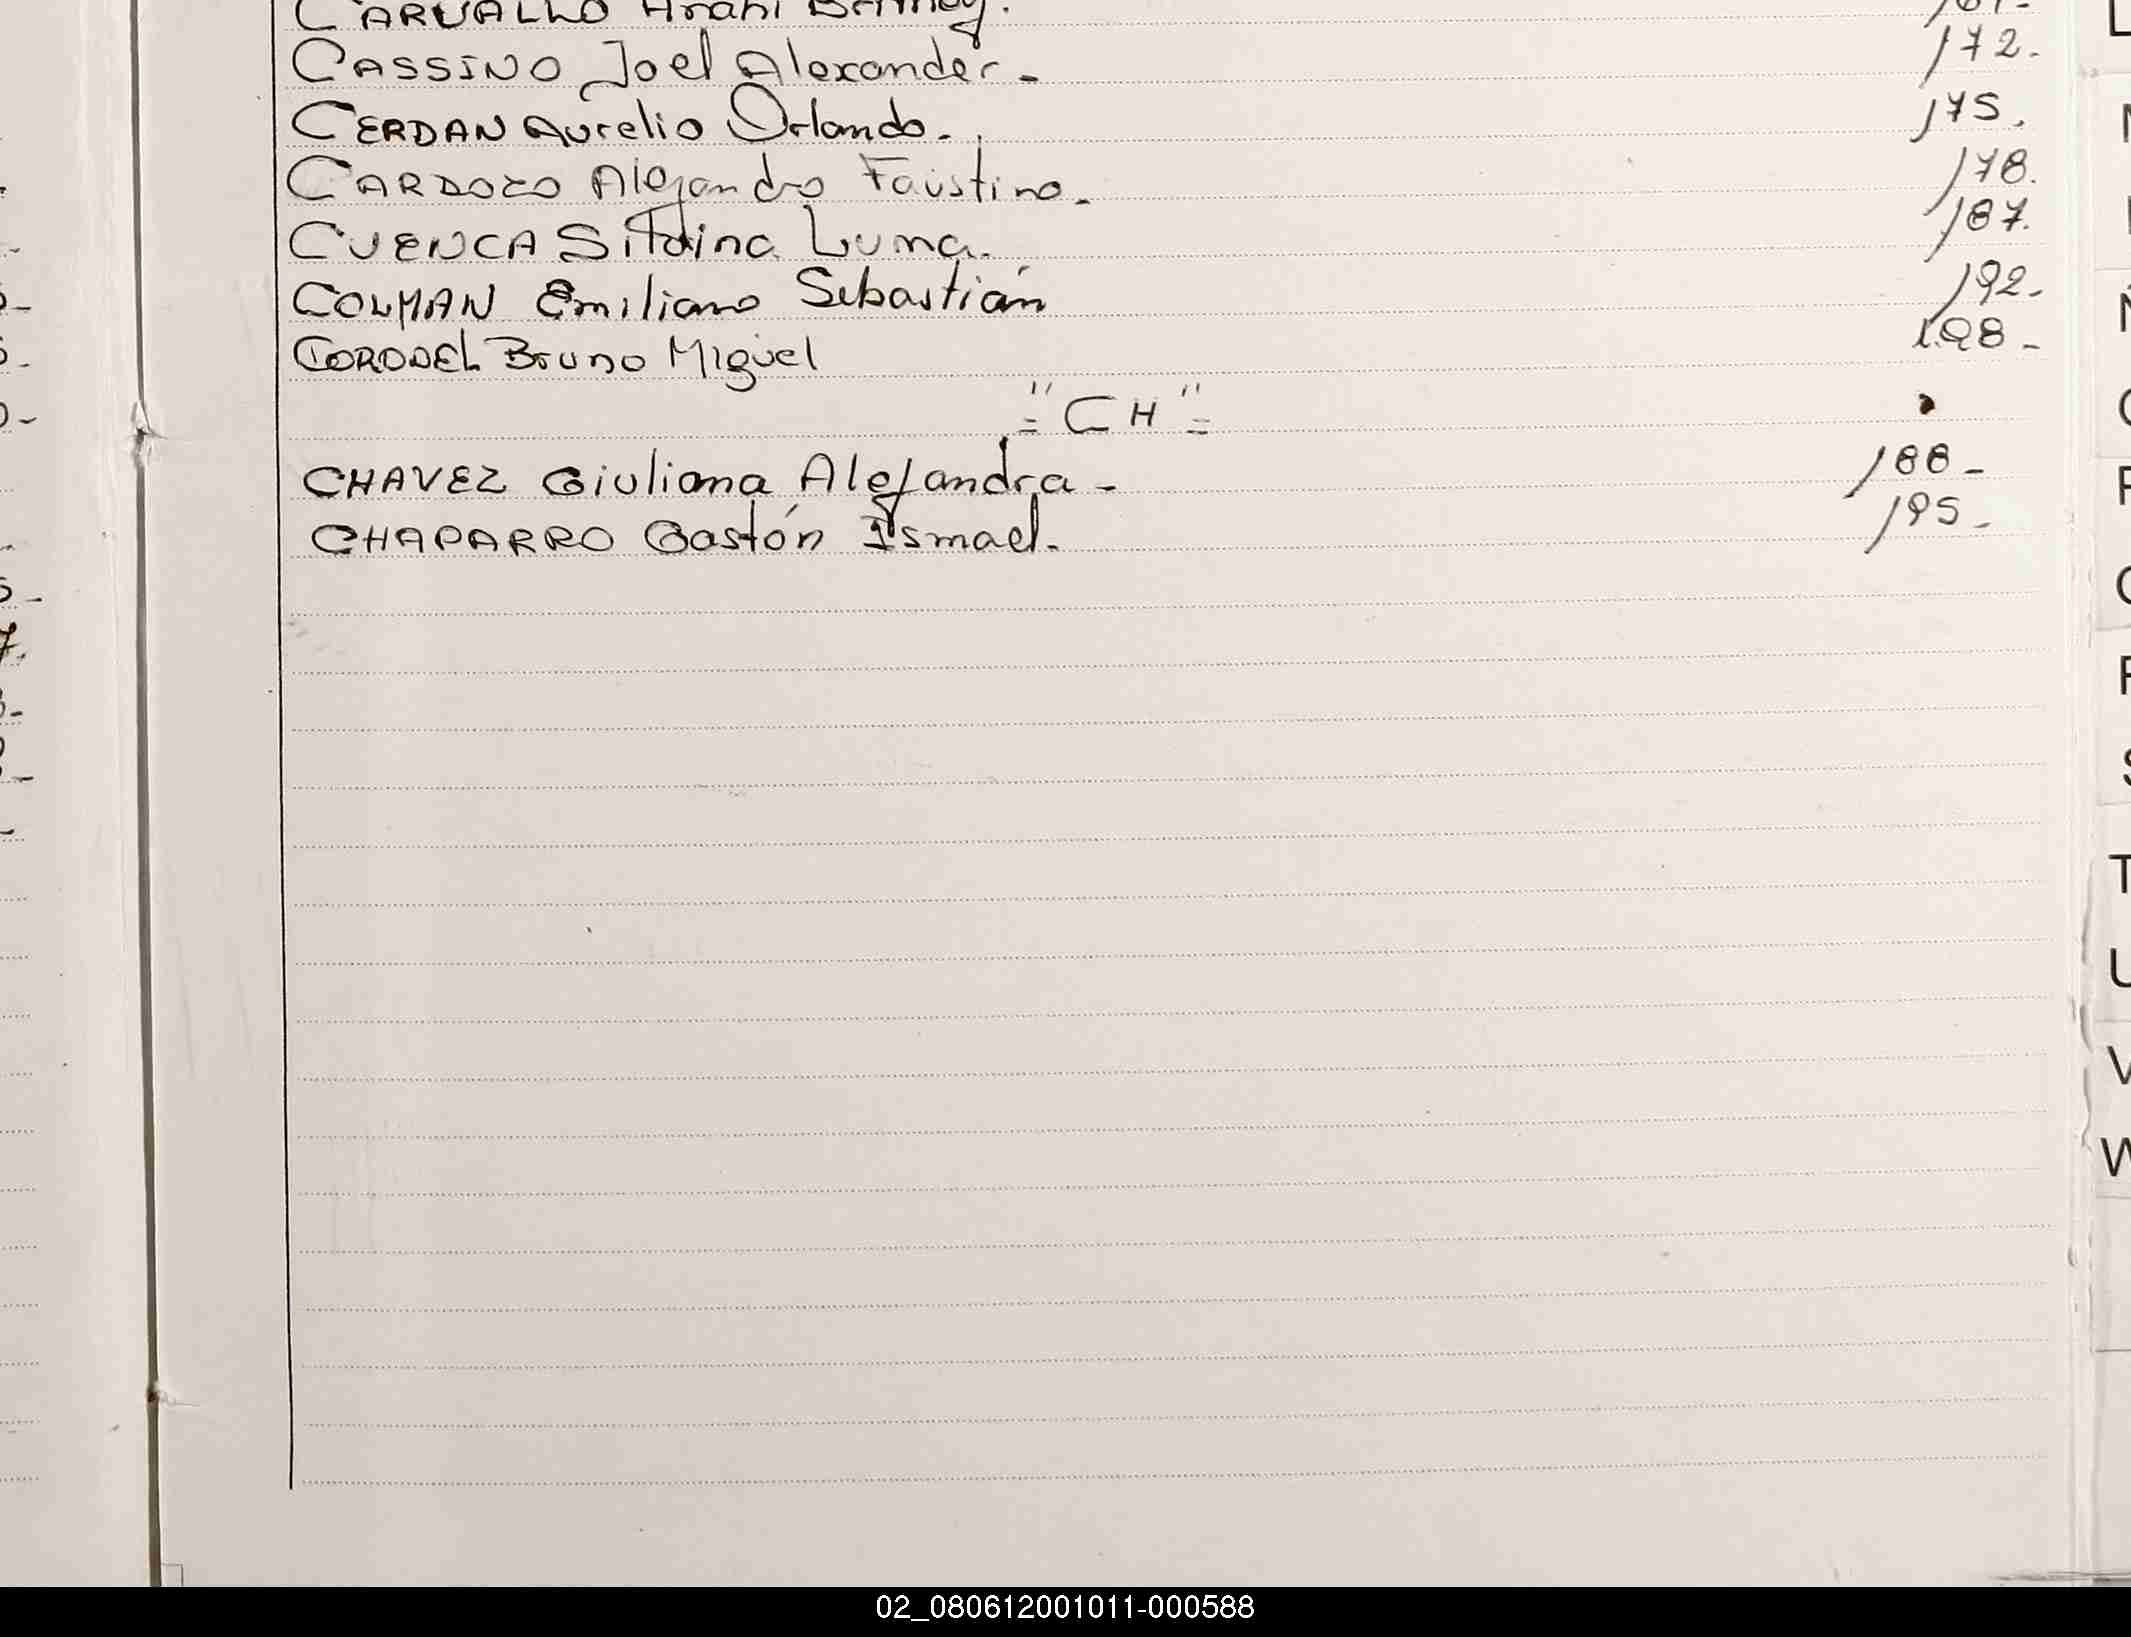 CASSINO Joel Alexander - 172 -
CERDAN Aurelio Orlando - 175.
CARDOZO Alejandro Faustino - 178.
CUENCA Sitaina Luma. 187.
COLMAN Emiliano Sebastián 192 -
CORONEL Bruno Miguel 198 -
= "CH" =
CHAVEZ Giuliana Alejandra - 188 -
CHAPARRO Gastón Ismael. 195 -
T
V
W
02_080612001011-000588